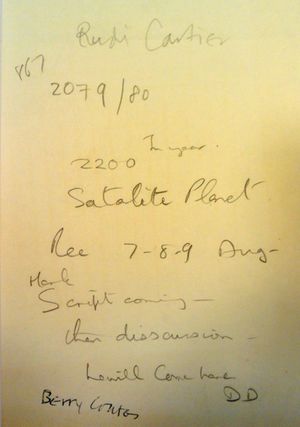 Rudi Cartier
867
2079/80
In year.
2200
Satalite Planet
Rec 7-8-9 Aug-
Hank
Script coming -
then disscursion -
he will Come here
DD
Betty